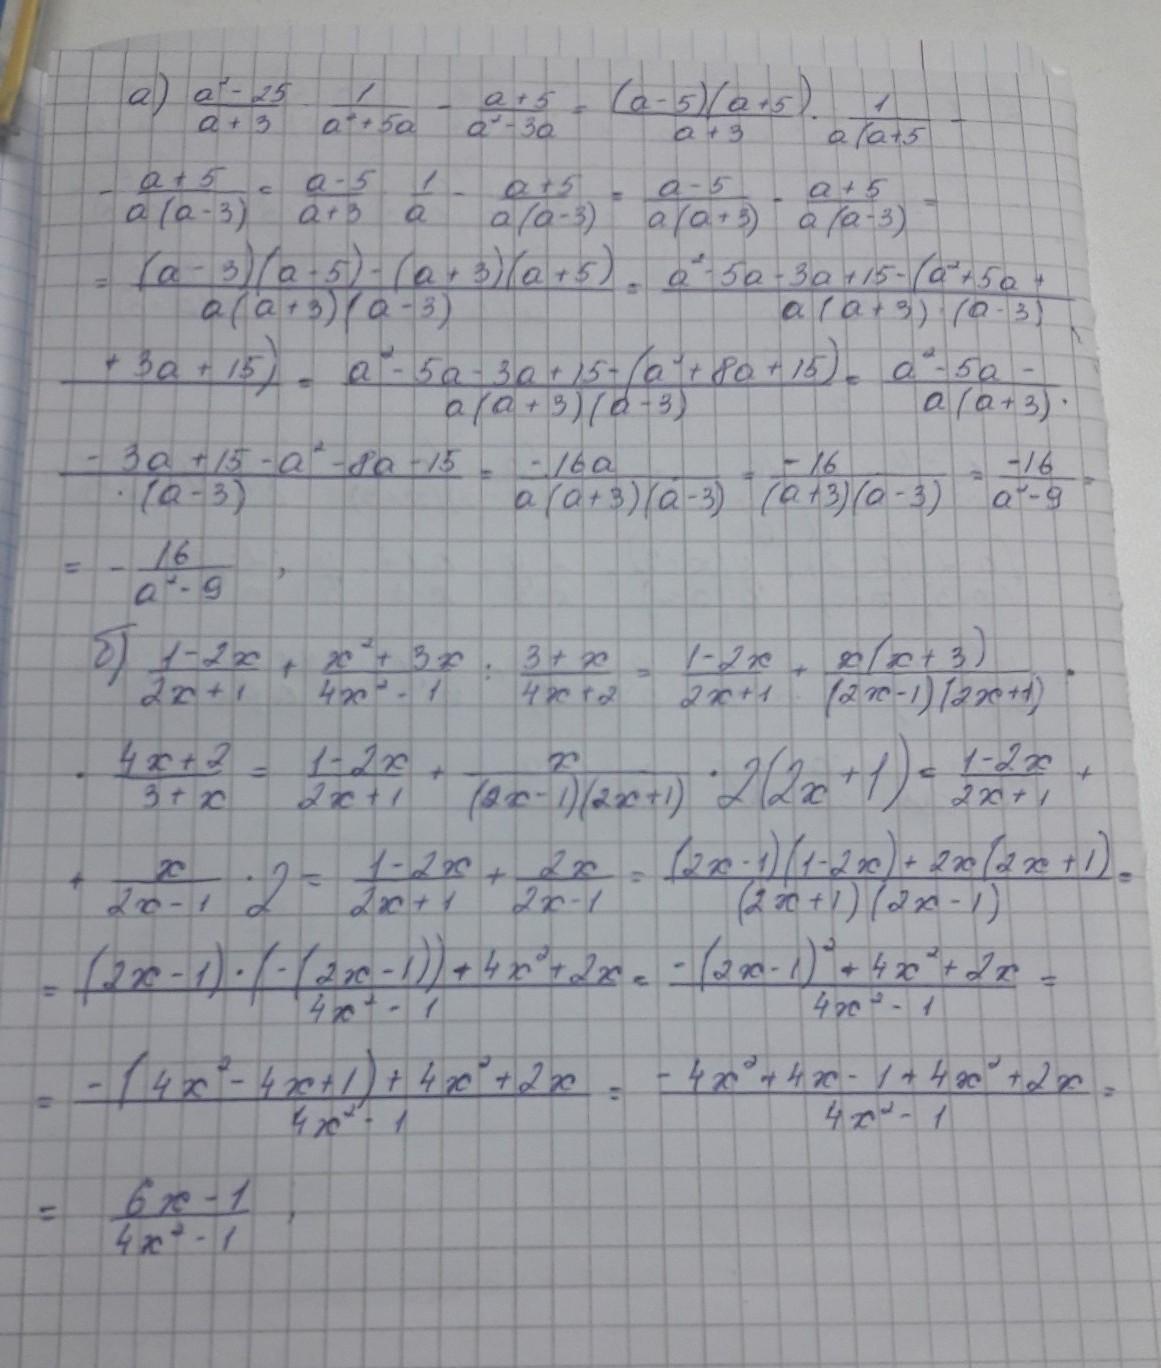 а) (a² - 25)/(a + 3) · 1/(a² + 5a) - (a + 5)/(a² - 3a) = ((a - 5)(a + 5))/(a + 3) · 1/(a(a + 5) -
- (a + 5)/(a(a - 3)) = (a - 5)/(a + 3) · 1/a - (a + 5)/(a(a - 3)) = (a - 5)/(a(a + 3)) - (a + 5)/(a(a - 3)) =
= ((a - 3)(a - 5) - (a + 3)(a + 5))/(a(a + 3)(a - 3)) = (a² - 5a - 3a + 15 - (a² + 5a +)/(a(a + 3) · (a - 3))
(+ 3a + 15)) = (a² - 5a - 3a + 15 - (a² + 8a + 15))/(a(a + 3)(a - 3)) = (a² - 5a -)/(a(a + 3) ·)
(- 3a + 15 - a² - 8a - 15)/(· (a - 3)) = (-16a)/(a(a + 3)(a - 3)) = (-16)/((a + 3)(a - 3)) = (-16)/(a² - 9) =
= - 16/(a² - 9) ,
б) (1 - 2x)/(2x + 1) + (x² + 3x)/(4x² - 1) : (3 + x)/(4x + 2) = (1 - 2x)/(2x + 1) + (x(x + 3))/((2x - 1)(2x + 1)) ·
· (4x + 2)/(3 + x) = (1 - 2x)/(2x + 1) + x/((2x - 1)(2x + 1)) · 2(2x + 1) = (1 - 2x)/(2x + 1) +
+ x/(2x - 1) · 2 = (1 - 2x)/(2x + 1) + 2x/(2x - 1) = ((2x - 1)(1 - 2x) + 2x(2x + 1))/((2x + 1)(2x - 1)) =
= ((2x - 1) · (-(2x - 1)) + 4x² + 2x)/(4x² - 1) = (-(2x - 1)² + 4x² + 2x)/(4x² - 1) =
= (-(4x² - 4x + 1) + 4x² + 2x)/(4x² - 1) = (-4x² + 4x - 1 + 4x² + 2x)/(4x² - 1) =
= (6x - 1)/(4x² - 1) ,